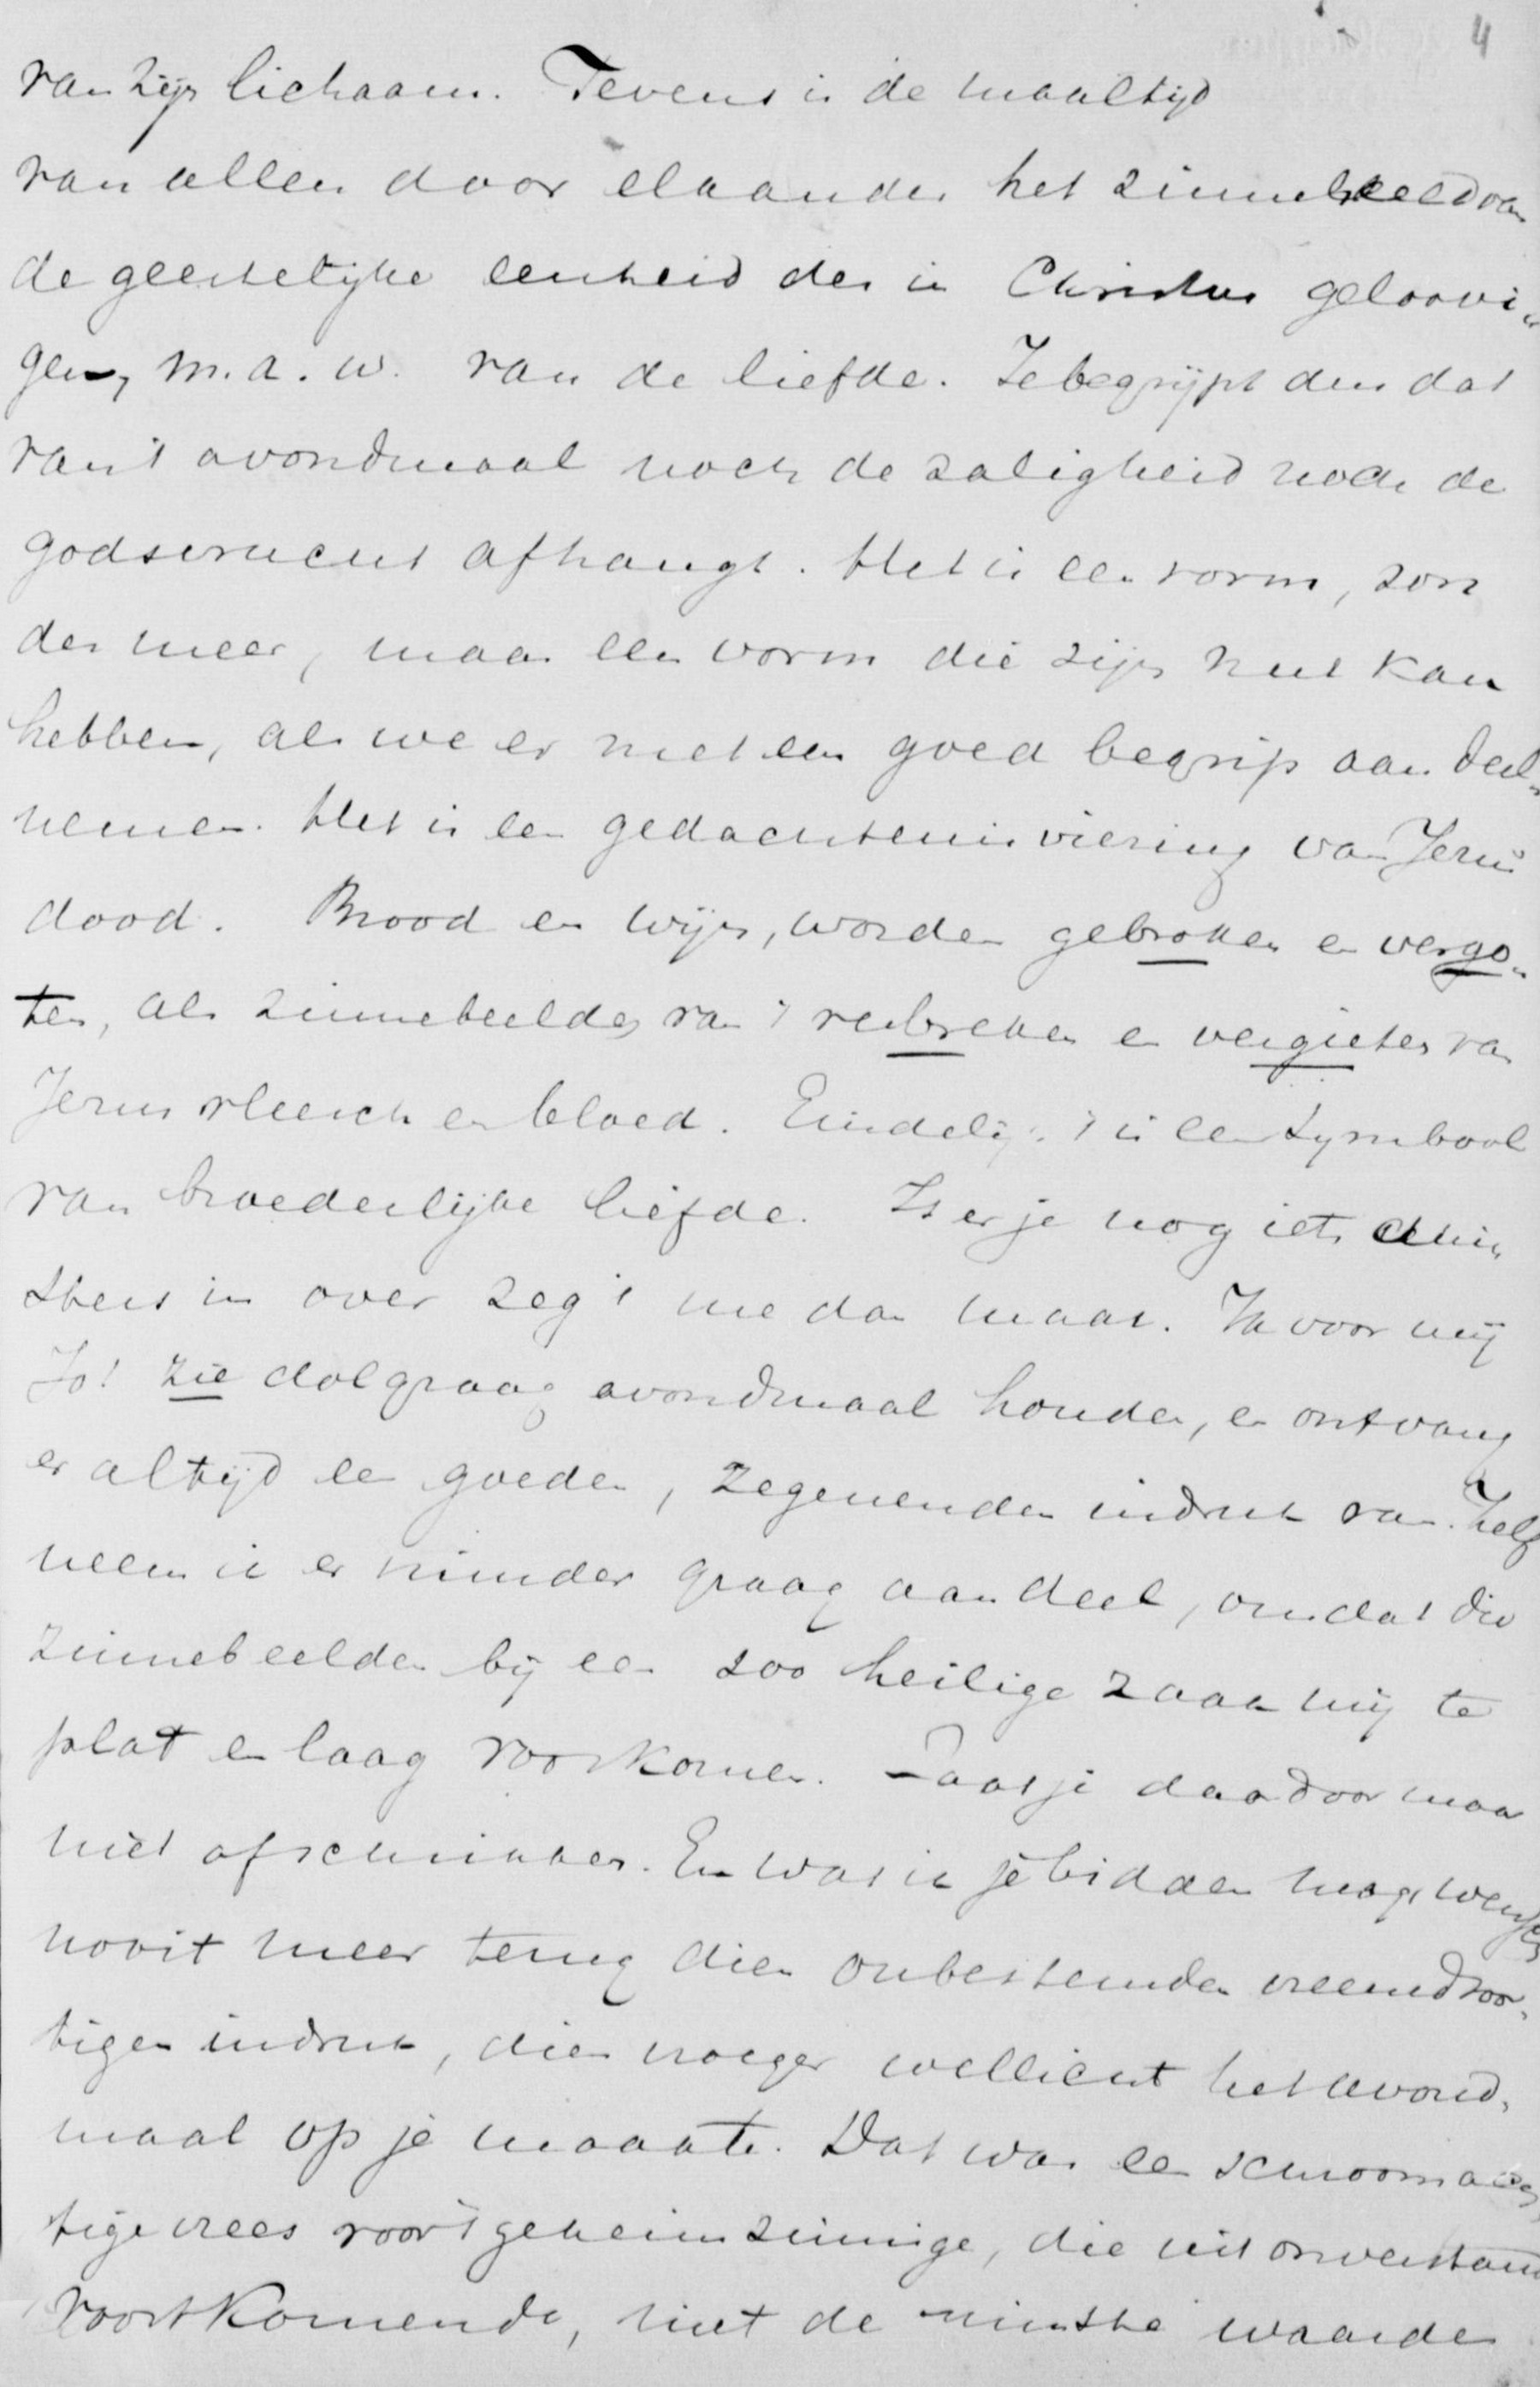 4
van zijn lichaam. Tevens is de maaltijd
van allen door elaander het zinnebeeld van
de geestelijke eenheid der in Christus geloovi-
gen, m.a.w. van de liefde. Je begrijpt dus dat
van 't avondmaal noch de zaligheid noch de
godsvrucht afhangt. Het is een vorm, zon
der meer, maar een vorm die zijn nut kan
hebben, als we er met een goed begrip aan deel-
nemen. Het is een gedachtenisviering van Jezus
dood. Brood en wijn, worden gebroken en vergo-
ten, als zinnebeelden van 't verbreken en vergieten van
Jezus vleesch en bloed. Eindelijk 't is een symbool
van broederlijke liefde. Is er je nog iets duis-
ters in over zeg 't me dan maar. Ik voor mij
Jo! zie dolgraag avondmaal houden, en ontvang
er altijd een goeden, zegenenden indruk van. Zelf
neem ik er minder graag aan deel, omdat die
zinnebeelden bij een zoo heilige zaak mij te
plat en laag voorkomen. Laat je daardoor maar
niet afschrikken. En wat ik je bidden mag, wensch
nooit meer terug dien onbestemden vreemdsoor-
tigen indruk, dien vroeger wellicht het avond-
maal op je maakte. Dat was een schroomach-
tige vrees voor 't geheimzinnige, die uit onverstand
voortkomende, niet de minste waarde